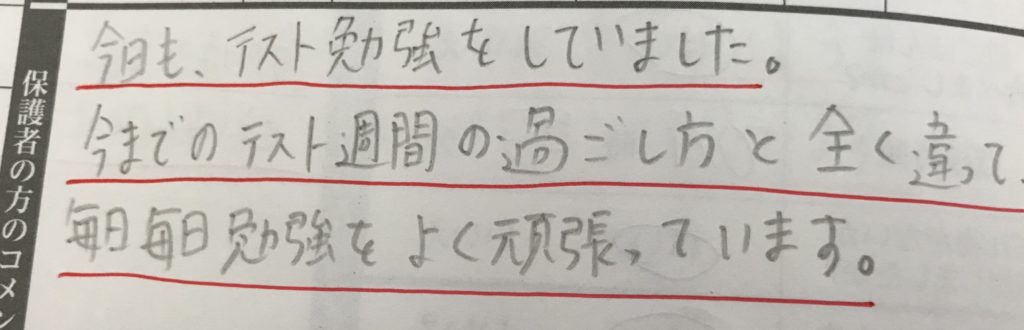 今日も、テスト勉強をしていました。
今までのテスト週間の過ごし方と全く違って、
毎日毎日勉強をよく頑張っています。
保護者の方のコメン